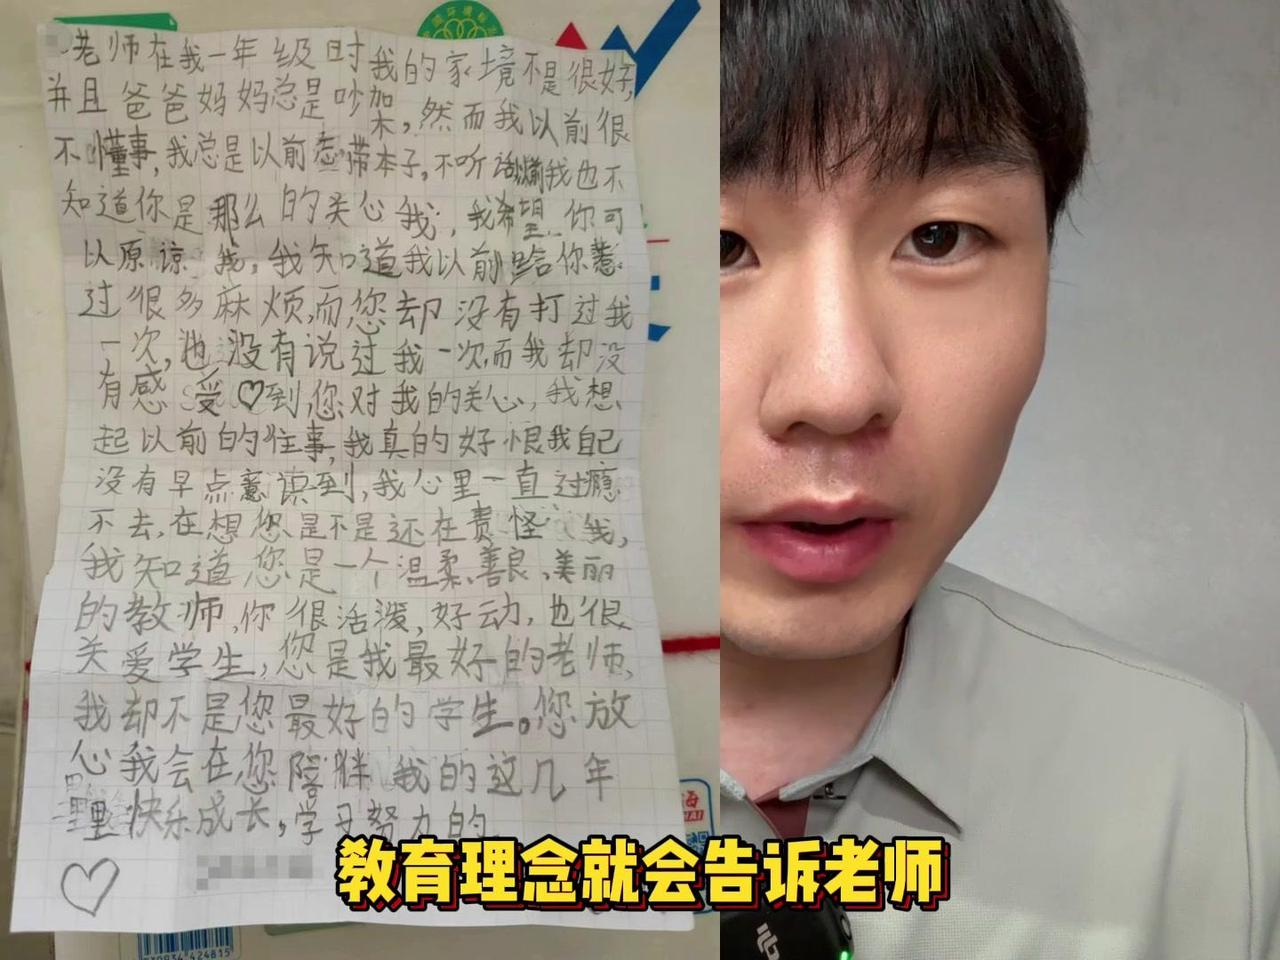 老师在我一年级时我的家境不是很好,
并且爸爸妈妈总是吵架,然而我以前很
不懂事,我总是以前惹带本子,不听话我也不
知道你是那么的关心我,我希望你可
以原谅我,我知道我以前给你惹
过很多麻烦,而您却没有打过我
一次,也没有说过我一次,而我却没
有感受♡到,您对我的关心,我想
起以前的往事,我真的好恨我自己
没有早点意识到,我心里一直过瘾
不去,在想您是不是还在责怪我,
我知道您是一个温柔、善良、美丽
的教师,你很活泼,好动,也很
关爱学生,您是我最好的老师,
我却不是您最好的学生。您放
心我会在您陪伴我的这几年
里快乐成长,学习努力的
教育理念就会告诉老师